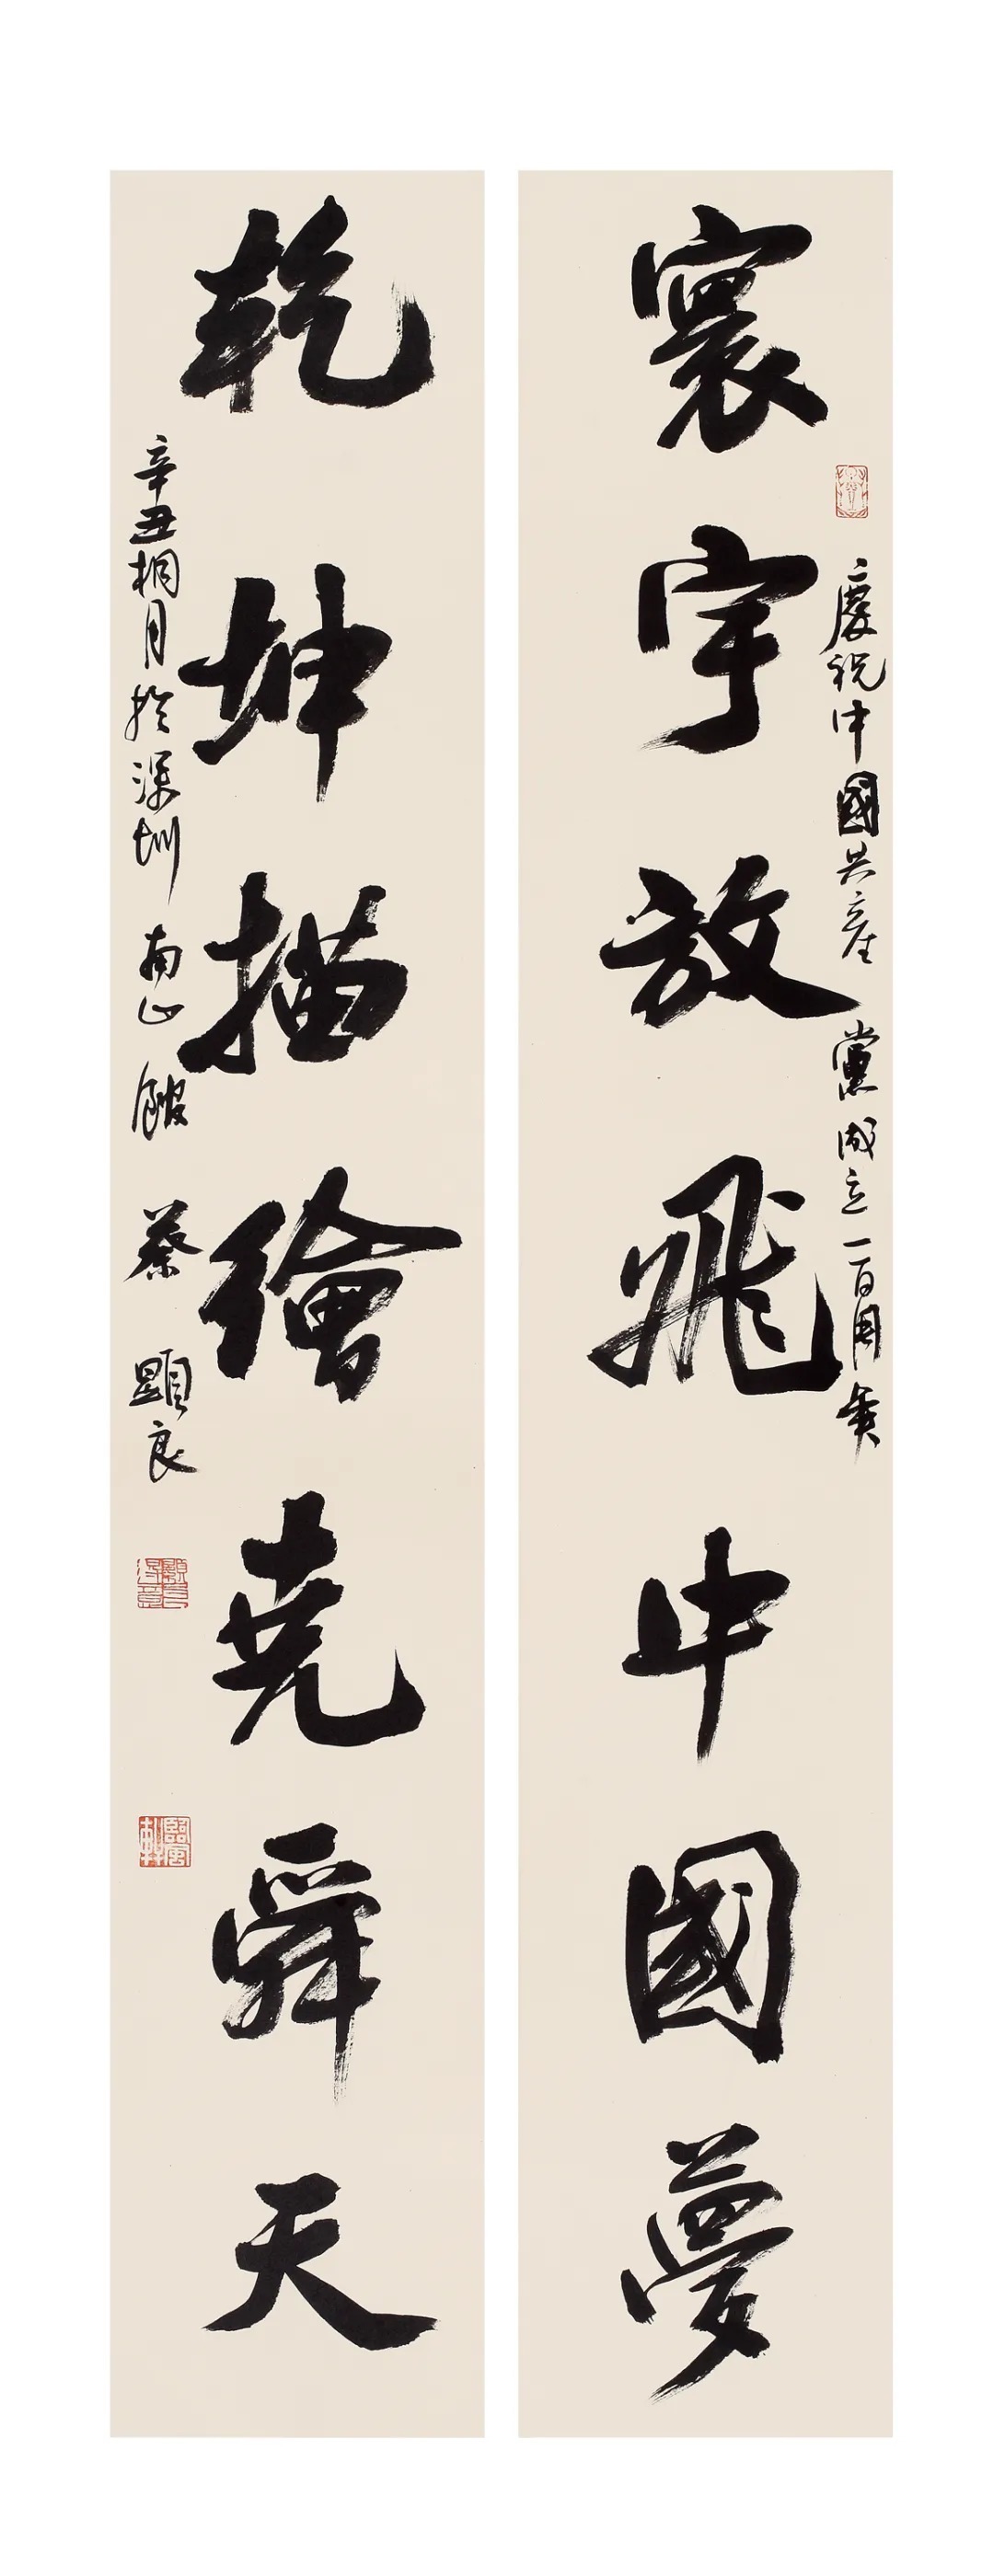 寰宇放飛中國夢
慶祝中國共産黨成立一百周年
乾坤描繪堯舜天
辛丑桐月於深圳南山 蔡顯良